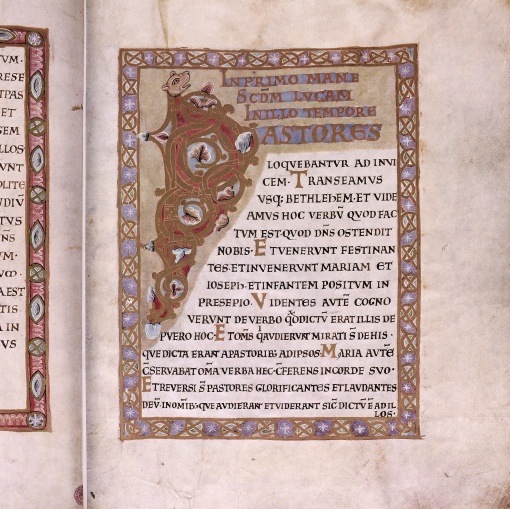 TVM·
RESE
TPAS
ET
SEM
LLOS·
VNT
OLITE
VDIV̄
TVS
VM·
AEST
TIS
A IN
VS
IN PRIMO MANE
SCDM LVCAM
IN ILLO TEMPORE
PASTORES
LOQVEBANTVR AD INVI
CEM· TRANSEAMVS
VSQ; BETHLEHEM· ET VIDE
AMVS HOC VERBV̄ QVOD FAC
TVM EST· QVOD DN̄S OSTENDIT
NOBIS· ET VENERVNT FESTINAN
TES· ET INVENERVNT MARIAM ET
IOSEPH· ET INFANTEM POSITVM IN
PRESEPIO· VIDENTES AVTĒ COGNO
VERVNT DE VERBO QD̄ DICTV̄ ERAT ILLIS DE
PVERO HOC· ET OMS̄ QVI AVDIERVNT MIRATI S̄ DE HIS·
QVE DICTA ERANT A PASTORIB; AD IPSOS· MARIA AVTĒ
CŌSERVABAT OM̄A VERBA HEC· CŌFERENS IN CORDE SVO·
ET REVERSI S̄ PASTORES GLORIFICANTES ET LAVDANTES
DEV̄· IN OMIB; QVE AVDIERANT ET VIDERANT SIC̄ DICTV̄ Ē AD IL
LOS·